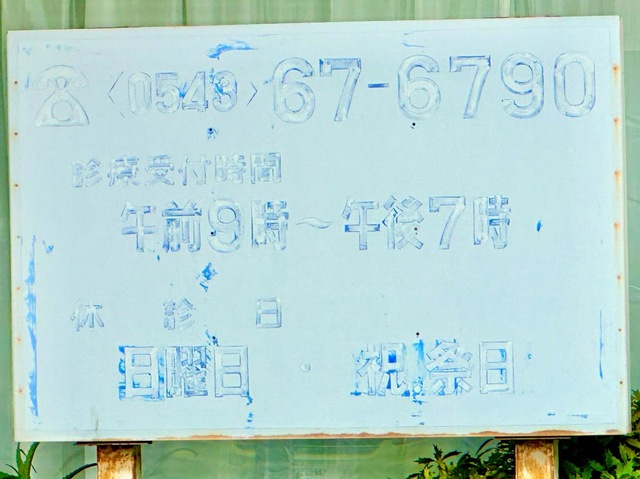 ☎〈0549〉67-6790
診療受付時間
午前9時~午後7時
休診日
日曜日・祝祭日